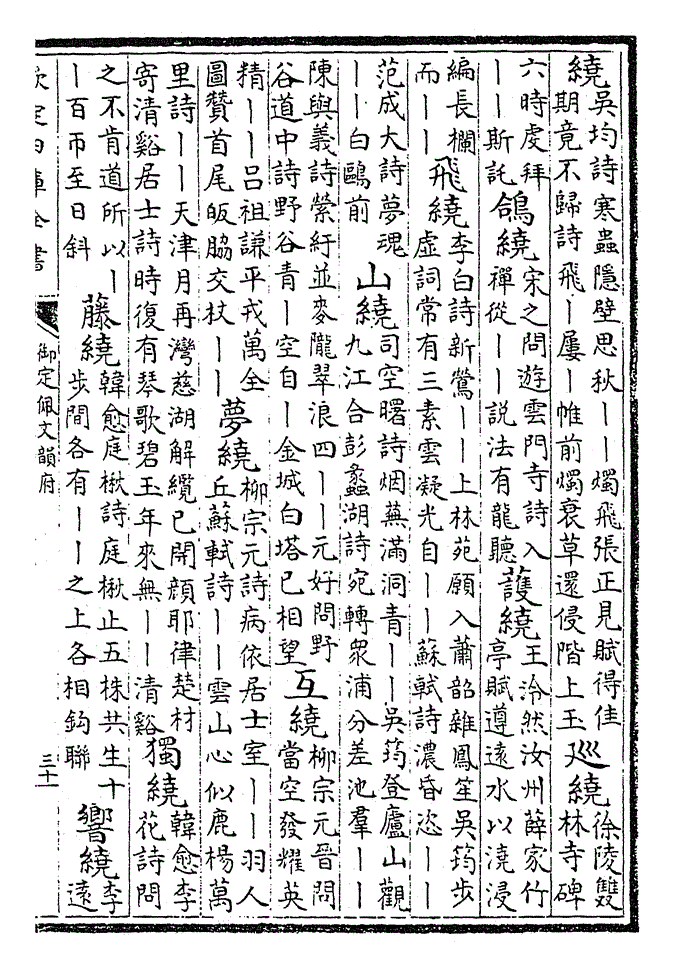 繞吳均詩寒蟲隱壁思秋丨丨燭飛張正見賦得佳
期竟不歸詩飛丨屢丨帷前燭衰草還侵階上玉
巡繞徐陵雙
林寺碑
六時虔拜
丨丨斯託
鴿繞宋之問遊雲門寺詩入
禪從丨丨說法有龍聽
護繞王泠然汝州薛家竹
亭賦遵遠水以澆浸
編長欄
而丨丨
飛繞李白詩新鶯丨丨上林苑願入蕭韶雜鳳笙吳筠步
虛詞常有三素雲凝光自丨丨蘇軾詩濃昏恣丨丨
范成大詩夢魂
丨丨白鷗前
山繞司空曙詩烟蕪滿洞青丨丨吳筠登廬山觀
九江合彭蠡湖詩宛轉衆浦分差池羣丨丨
陳與義詩縈紆並麥隴翠浪四丨丨元好問野
谷道中詩野谷青丨空自丨金城白塔已相望
互繞柳宗元晉問
當空發耀英
精丨丨呂祖謙平戎萬全
圖贊首尾皈脇交杖丨丨
夢繞柳宗元詩病依居士室丨丨羽人
丘蘇軾詩丨丨雲山心似鹿楊萬
里詩丨丨天津月再灣慈湖解纜已開顔耶律楚材
寄清谿居士詩時復有琴歌碧玉年來無丨丨清谿
獨繞韓愈李
花詩問
之不肯道所以丨
丨百帀至日斜
藤繞韓愈庭楸詩庭楸止五株共生十
步間各有丨丨之上各相鈎聯
響繞李
遠
欽定四庫全書
御定佩文韻府
三十一